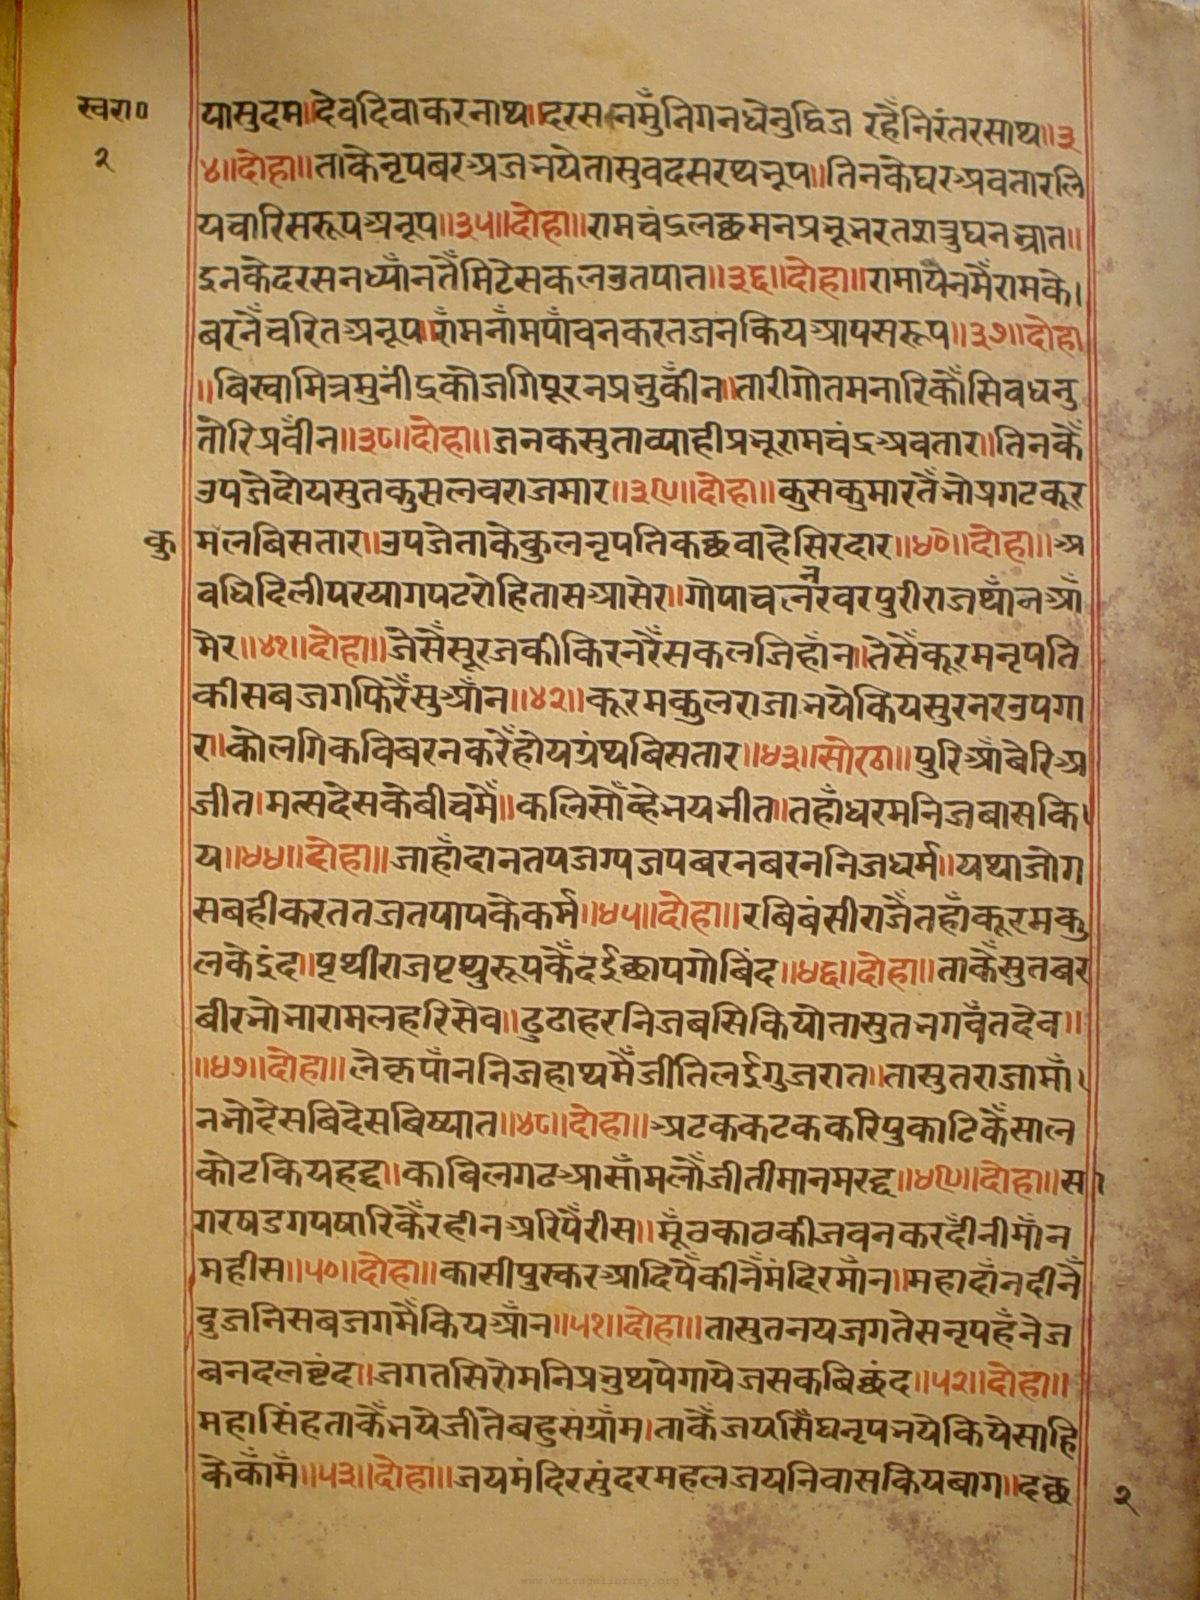 स्वरा०
२
यासुदम॥देवदिवाकरनाथ॥दरसनमुँनिगनधेनुद्विज रहैँनिरंतरसाथ॥३
४॥दोहा॥ताकेनृपबरअजभयेतासुवदसरथभूप॥तिनकेघरअवतारलि
यचारिसरूपअनूप॥३५॥दोहा॥रामचंद्रलछमनप्रभूभरतशत्रुघनभ्रात॥
इनकेदरसनध्याँनतैँमिटेसकलउतपात॥३६॥दोहा॥रामायैनमैँरामके।
बरनैँचरितअनूप॥राँमनाँमपाँवनकरतजनकियआपसरूप॥३७॥दोहा
॥बिस्वामित्रमुनीँद्रकौजगिपूरनप्रभुकीँन॥तारीगोतमनारिकौँसिवधनु
तोरिप्रवीँन॥३८॥दोहा॥जनकसुताव्याहीप्रभूरामचंद्रअवतार॥तिनकैँ
उपजेदोयसुतकुसलवराजमार॥३९॥दोहा॥कुसकुमारतैँभोप्रगटकूर
कु
मलबिसतार॥उपजेताकेकुलनृपतिकछवाहेसिरदार॥४०॥दोहा॥अ
वधिदिलीपरयागपटरोहितासआसेर॥गोपाचलनरवरपुरीराजथाँनआँ
मेर॥४१॥दोहा॥जेसैँसूरजकीकिरनरैँसकलजिहाँन॥तेसैँकूरमनृपति
कीसबजगफिरैँसुआँन॥४२॥कूरमकुलराजाभयेकियसुरनरउपगा
र॥कौलगिकविबरनकरैँहोयग्रंथबिसतार॥४३॥सोरठा॥पुरिआँबेरिअ
जीत।मत्सदेसकेबीचमैँ॥कलिसौँव्हेनयभीत॥तहाँधरमनिजबासकि।
य॥४४॥दोहा॥जाहाँदानतपजग्यजपबरनबरननिजधर्म॥यथाजोग
सबहीकरततजतपापकेकर्म॥४५॥दोहा॥रबिबंसीराजैँतहाँकूरमकु
लकेइंद॥पृथीराजपृथुरूपकैँदईछापगोबिंद॥४६॥दोहा॥ताकैँसुतबर
बीरभोभारामलहरिसेव॥ढुढाहरनिजबसिकियोतासुतभगवँतदेव॥
॥४७॥दोहा॥लेकृपाँननिजहाथमैँजीतिलईगुजरात॥तासुतराजामाँ।
नभोदेसबिदेसबिष्यात॥४८॥दोहा॥अटककटककरिपुकाटिकैँसाल
कोटकियहद्द॥काबिलगढआसाँमलौँजीतीमानमरद्द॥४९॥दोहा॥स
गरषडगपषारिकैँरहीनअरिपैरीस॥मूँचकाचकीजवनकरदीँनीमाँन
महीस॥५०॥दोहा॥कासीपुस्करआदिपैँकीनैँमंदिरमाँन॥महादाँनदीनैँ
दुजनिसबजगमैँकियआँन॥५१॥दोहा॥तासुतनयजगतेसनृपहँनेज
बनदलबृंद॥जगतसिरोमनिप्रभुथपेगायैजसकबिछंद॥५२॥दोहा॥
महासिंहताकैँभयेजीतेबहुसंग्राँम।ताकैँजयसिँघनृपभयेकियेसाहि
केकाँमँ॥५३॥दोहा॥जयमंदिरसुंदरमहलजयनिवासकियबाग॥दछ
२
www.vitragelibrary.org